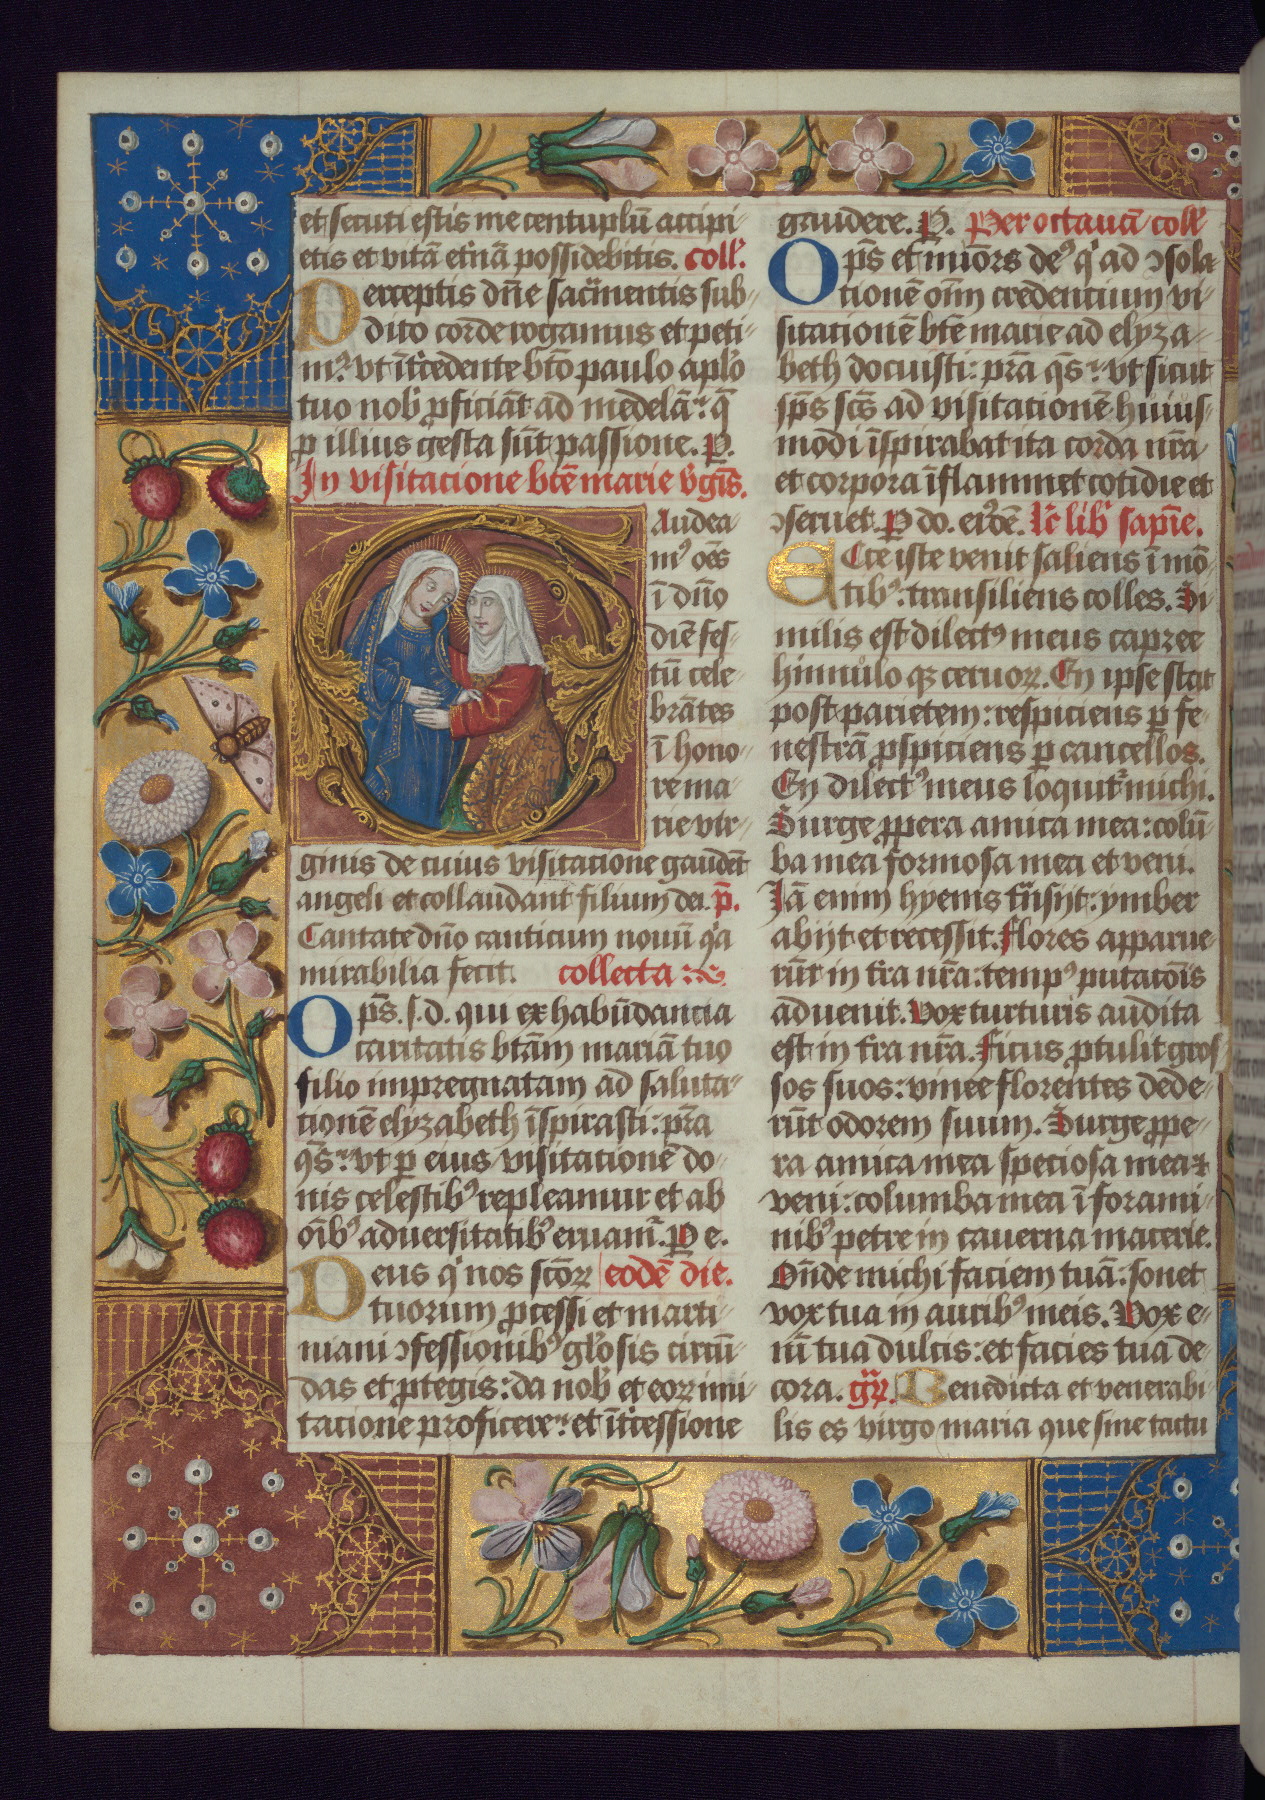 et secuti estis me centuplū accipi-
etis et vitā et̾nā possidebitis. Coll'.
Perceptis dn̄e sac̾mentis sub-
dito corde rogamus et peti-
m⁹: vt īt̾cedente btō paulo aplo
tuo nob̾ ꝓficiāt ad medelā: q̄
ꝑ illius gesta sūt passione. P.
In visitacione btē marie v̾gīs.
Gaudea-
m⁹ oēs
ī dn̄o
diē fes-
tū cele-
brātes
ī hono-
re ma-
rie vir-
ginis de cuius visitacione gaudēt
angeli et collaudant filium dei. p̄.
Cantate dn̄o canticum nouū q̾a
mirabilia fecit. collecta
Op̄s. s. d. qui ex habūdancia
caritatis btām mariā tuo
filio impregnatam ad saluta-
tionē elyzabeth īspirasti: pr̄a
qs̄: vt ꝑ eius visitationē do-
nis celestib⁹ repleamur et ab
oīb⁹ aduersitatib⁹ eruam̾. P e.
Deus q̾ nos sc̄oꝝ eodē die.
tuorum ꝓcessi et marti-
niani ↄfessionib⁹ gl̾osis circū-
das et ꝓtegis: da nob̾ et eoꝝ imi-
tacione proficere: et īt̾cessione
gaudere. P. Per octauā coll'
Op̄s et mīors de⁹ q̾ ad ↄsola-
tionē oīm credencium vi-
sitationē btē marie ad elyza-
beth docuisti: pr̄a qs̄: vt sicut
sp̄s sc̄s ad visitationē huius-
modi īspirabat ita corda nr̄a
et corpora īflammet cotidie et
ↄseruet. P do. ei⁹dē. Lc̄ lib̾ sapīe.
Ecce iste venit saliens ī mō-
tib⁹: transiliens colles. Si-
milis est dilect⁹ meus capree
hinnulo qꝫ ceruoꝝ. En ipse stat
post parietem: respiciens ꝑ fe-
nestrā ꝓspiciens ꝑ cancellos.
En dilect⁹ meus loquit̾ michi.
Surge ꝓpera amica mea: colū-
ba mea formosa mea et veni.
Jā enim hyems tr̄nsijt: ymber
abijt et recessit. Flores apparue-
rūt in t̾ra nr̄a: temp⁹ putacōis
aduenit. Vox turturis audita
est in t̾ra nr̄a. Ficus ꝓtulit gros-
sos suos: vinee florentes dede-
rūt odorem suum. Surge ꝓpe-
ra amica mea speciosa mea ⁊
veni: columba mea ī forami-
nib⁹ petre in cauerna macerie.
On̄de michi faciem tuā: sonet
vox tua in aurib⁹ meis. Vox e-
nī tua dulcis: et facies tua de-
cora. gr̄. Benedicta et venerabi-
lis es virgo maria que sine tactu